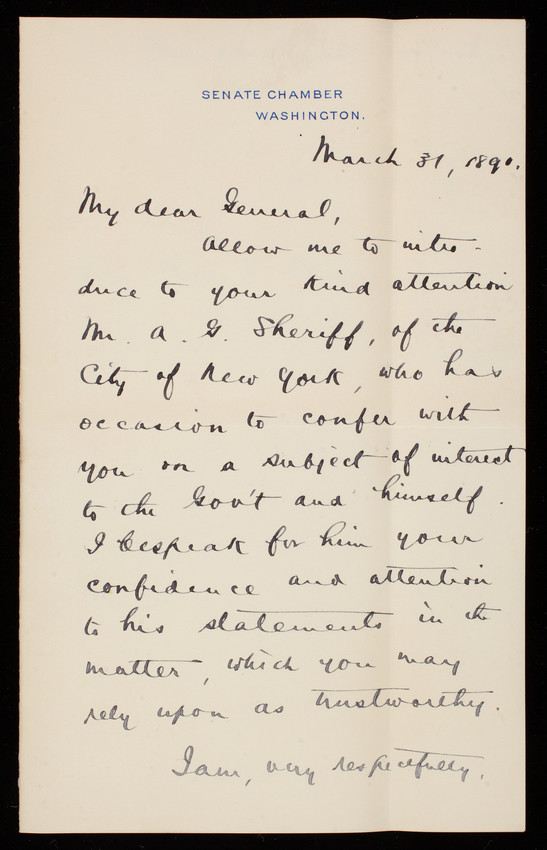 SENATE CHAMBER
WASHINGTON.
March 31, 1890.
My dear General,
Allow me to intro-
duce to your kind attention
Mr. A. G. Sheriff, of the
City of New York, who has
occasion to confer with
you on a subject of interest
to the Gov't and himself.
I bespeak for him your
confidence and attention
to his statements in the
matter, which you may
rely upon as trustworthy.
I am, very respectfully,